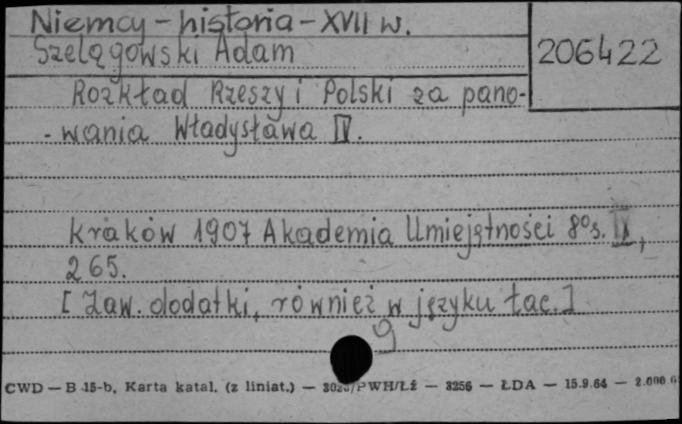 Niemcy - historia - XVII w.
Szelągowski Adam
206422
Rozkład Rzeszy i Polski za pano-
- wania Władysława IV.
Kraków 1907 Akademia Umiejętności 8° s. IX,
265.
[Zaw. dodatki, również w języku łac.]
g
CWD — B 15-b, Karta katal. (z liniat.) — PWH/Łź — 3256 — ŁDA — 15.9.64 —